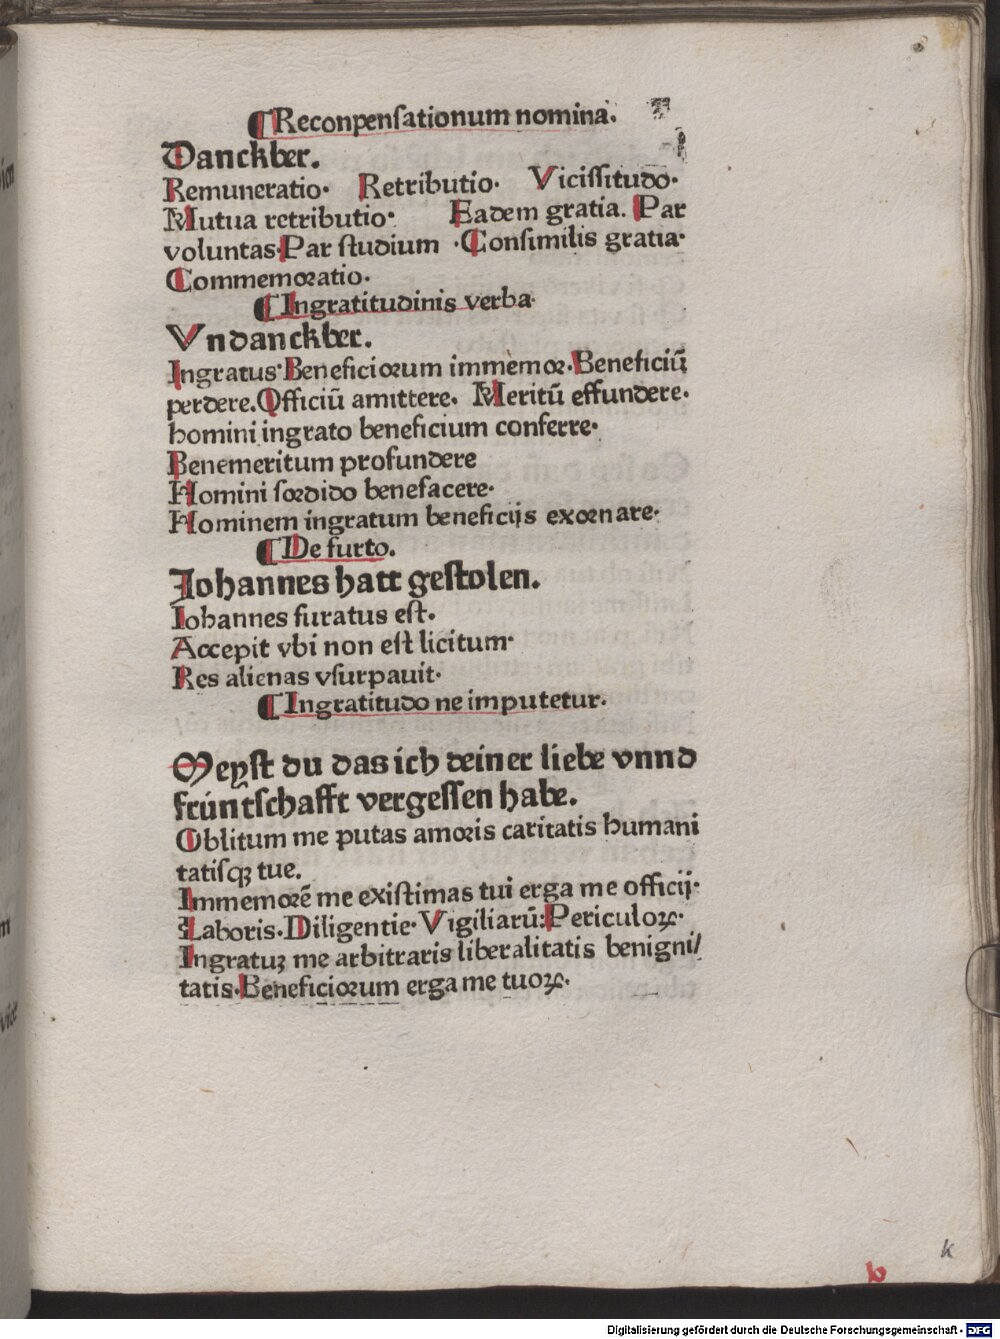 ¶Reconpensationum nomina.
Danckber.
Remuneratio. Retributio. Vicissitudo.
Mutua retributio. Eadem gratia. Par
voluntas. Par studium . Consimilis gratia.
Commemoratio.
¶Ingratitudinis verba.
Vndanckber.
Ingratus. Beneficiorum immemor. Beneficiū
perdere. Officiū amittere. Meritū effundere.
homini ingrato beneficium conferre.
Benemeritum profundere
Homini sordido benefacere.
Hominem ingratum beneficijs exornare.
¶De furto.
Johannes hatt gestolen.
Iohannes furatus est.
Accepit vbi non est licitum.
Res alienas vsurpauit.
¶Ingratitudo ne imputetur.
Meyst du das ich deiner liebe vnnd
früntschafft vergessen habe.
Oblitum me putas amoris caritatis humani
tatisqꝫ tue.
Immemorē me existimas tui erga me officij.
Laboris. Diligentie. Vigiliarū: Periculoꝝ.
Ingratuꝫ me arbitraris liberalitatis benigni/
tatis. Beneficiorum erga me tuoꝝ.
k
b
Digitalisierung gefördert durch die Deutsche Forschungsgemeinschaft - DFG